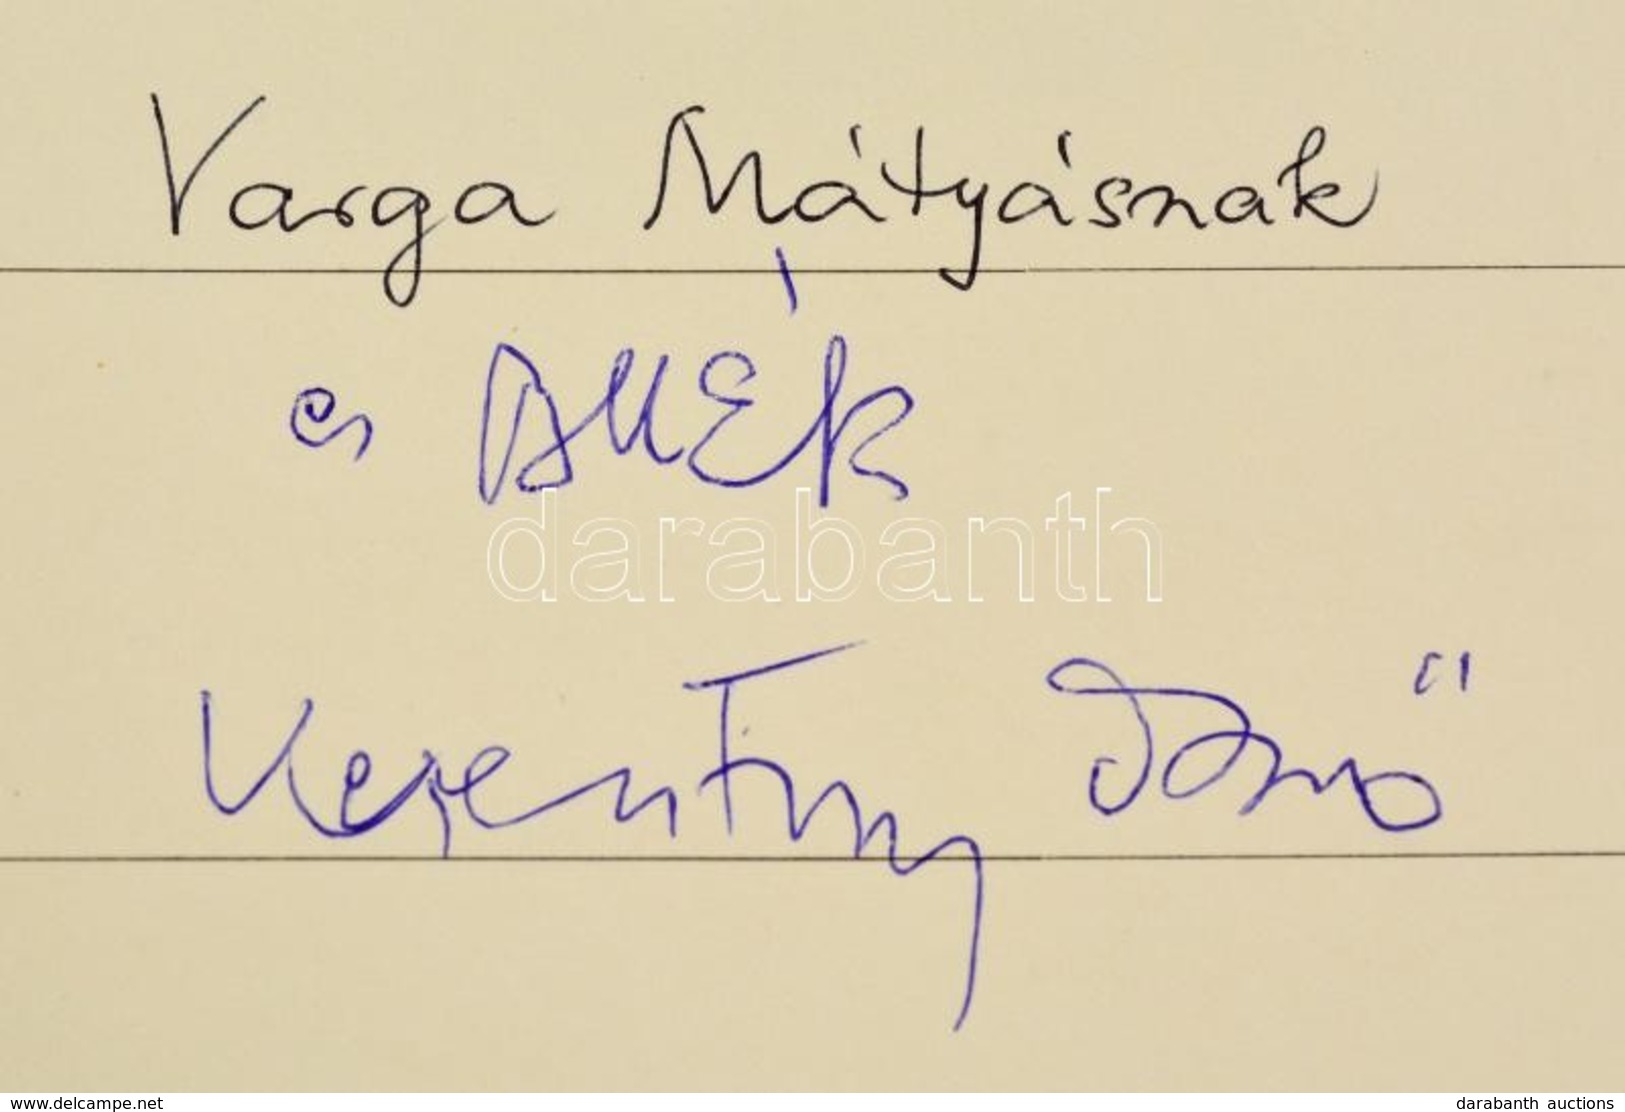 Varga Mátyásnak
és
darabanth
Keresztury Dezső
www.delcampe.net
darabanth auctions